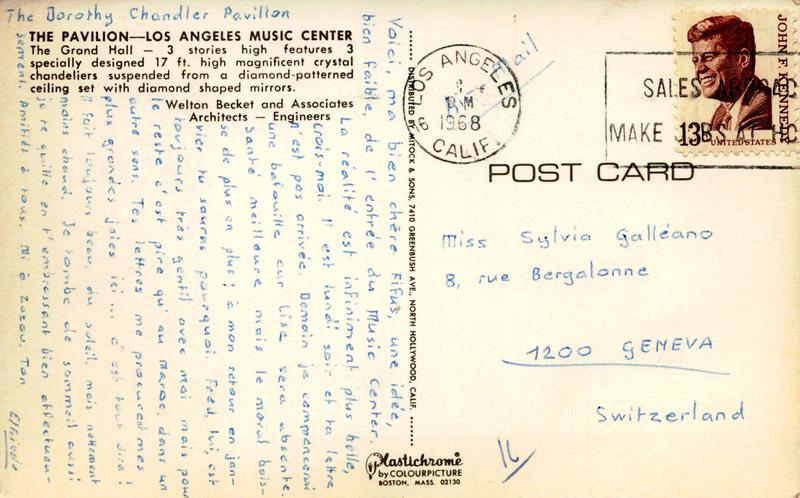 The Dorothy Chandler Pavilion
THE PAVILION—LOS ANGELES MUSIC CENTER
The Grand Hall — 3 stories high features 3
specially designed 17 ft. high magnificent crystal
chandeliers suspended from a diamond-patterned
ceiling set with diamond shaped mirrors.
Welton Becket and Associates
Architects — Engineers
Voici, ma bien chère Fifus, une idée,
bien faible, de l'entrée du Music Center.
La réalité est infiniment plus belle,
crois-moi. Il est lundi soir et ta lettre
n'est pas arrivée. Demain je commencerai
une bafouille car Lise sera absente.
Santé meilleure mais le moral bais-
se de plus en plus; à mon retour en jan-
vier tu sauras pourquoi. Fred, lui, est
toujours très gentil avec moi mais pour
le reste c'est pire qu'au Maroc, dans un
autre sens. Tes lettres me procurent mes
plus grandes joies ici... c'est tout dire!
Il fait toujours beau, du soleil, mais nettement
moins chaud. Je tombe de sommeil aussi
je te quitte en t'embrassant bien affectueu-
sement. Amitiés à tous. Ton
DISTRIBUTED BY MITOCK & SONS, 7410 GREENBUSH AVE., NORTH HOLLYWOOD, CALIF.
Plastichrome
by COLOURPICTURE
BOSTON, MASS. 02130
Air Mail
LOS ANGELES
PM
1968
CALIF.
SALES ABROAD
MAKE JOBS AT HO
JOHN F. KENNEDY
13c
UNITED STATES
POST CARD
Miss Sylvia Galléano
8, rue Bergalonne
1200 GENEVA
Switzerland
16